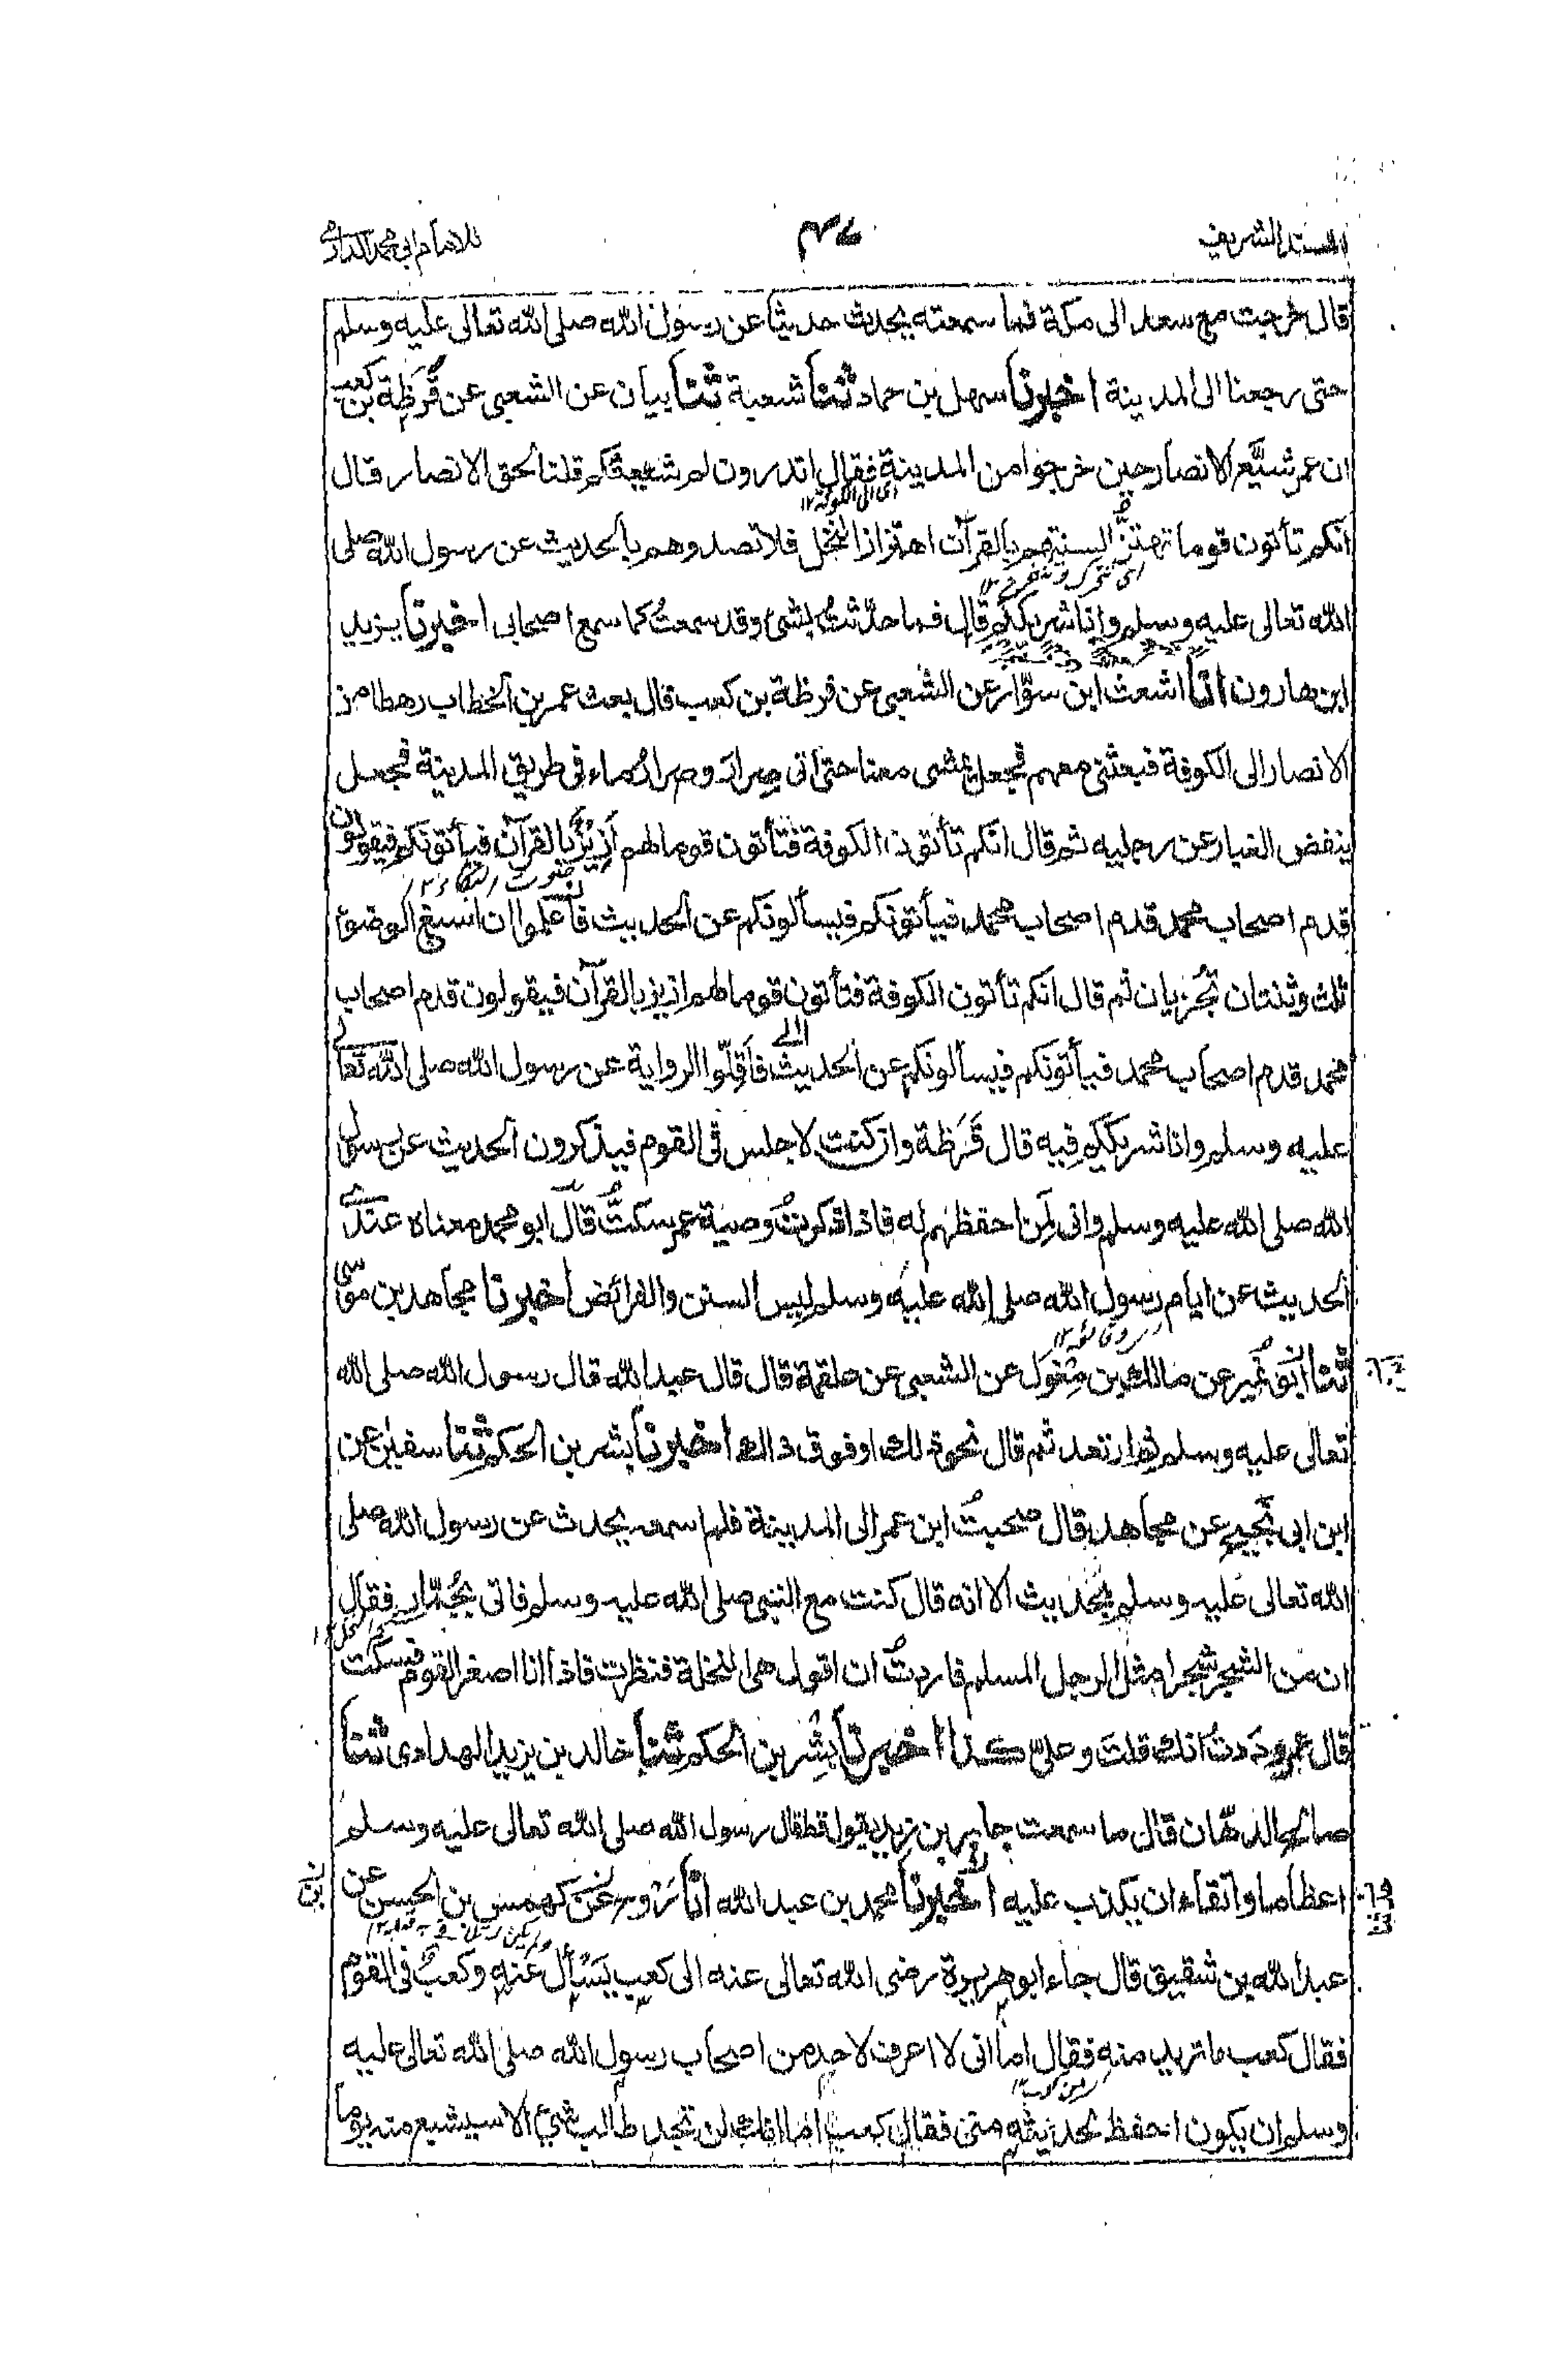 المسند الشريف
٤٧
للامام ابي محمد الدارمي
قال خرجت مع سعد الى مكة فما سمعته يحدث حديثا عن رسول الله صلى الله تعالى عليه وسلم
حتى رجعنا الى المدينة اخبرنا سهل بن حماد ثنا شعبة ثنا بيان عن الشعبي عن قَرَظَة بن كعب
ان عمر شيَّع الانصار حين خرجوا من المدينة فقال اتدرون لم شيعتكم قلنا لحق الانصار قال
اى الى الكوفة ١٢
انكم تأتون قوما تهتزّ السنتهم بالقرآن اهتزاز النخل فلا تصدوهم بالحديث عن رسول الله صلى
الله تعالى عليه وسلم وانا شريككم قال فما حدّثتُ بشئ وقد سمعتُ كما سمع اصحابى اخبرنا يزيد
ابن هارون انا اشعث ابن سوّار عن الشعبى عن قرظة بن كعب قال بعث عمر بن الخطاب رهطا من
الانصار الى الكوفة فبعثنى معهم فجعل يمشى معنا حتى اتى صِرارَ وصِرارُ ماء فى طريق المدينة فجعل
ينفض الغبار عن رجليه ثم قال انكم تأتون الكوفة فتأتون قوما لهم اَزِيزٌ بالقرآن فيأتونكم فيقولون
قدم اصحاب محمد قدم اصحاب محمد فيأتونكم فيسألونكم عن الحديث فاعلموا ان اسبغ الوضوء
ثلث وثنتان تُجزيان ثم قال انكم تأتون الكوفة فتأتون قوما لهم ازيز بالقرآن فيقولون قدم اصحاب
محمد قدم اصحاب محمد فيأتونكم فيسألونكم عن الحديث فاَقِلّوا الرواية عن رسول الله صلى الله تعالى
عليه وسلم وانا شريككم فيه قال قَرَظة وان كنت لاجلس فى القوم فيذكرون الحديث عن رسول
الله صلى الله عليه وسلم وانى لَمِن احفظهم له فاذا ذكرتُ وصية عمر سكتُّ قال ابو محمد معناه عندى
الحديث عن ايام رسول الله صلى الله عليه وسلم ليس السنن والفرائض اخبرنا مجاهد بن موسى
ثنا ابن نُمير عن مالك بن مِغول عن الشعبى عن علقمة قال قال عبد الله قال رسول الله صلى الله
تعالى عليه وسلم ثم ارتعد ثم قال نحو ذلك او فوق ذاك اخبرنا بشر بن الحكم ثنا سفيان عن
ابن ابى نَجيح عن مجاهد قال صحبتُ ابن عمر الى المدينة فلم اسمعه يحدث عن رسول الله صلى
الله تعالى عليه وسلم بحديث الا انه قال كنت مع النبى صلى الله عليه وسلم فاتى بجُمّار فقال
ان من الشجر شجرا مثل الرجل المسلم فاردتُ ان اقول هى النخلة فنظرت فاذا انا اصغر القوم فسكت
قال عمر وَدِدتُ انك قلتَ وعلىّ كذا اخبرنا بِشر بن الحكم ثنا خالد بن يزيد الهدادى ثنا
صالح الدهّان قال ما سمعت جابر بن زيد يقول قط قال رسول الله صلى الله تعالى عليه وسلم
اعظاما واتقاء ان يكذب عليه اخبرنا محمد بن عبد الله انا رَوح عن كهمس بن الحسن عن
عبد الله بن شقيق قال جاء ابو هريرة رضى الله تعالى عنه الى كعب يَسأل عنه وكعبٌ فى القوم
فقال كعب ما تريد منه فقال اما انى لا اعرف لاحد من اصحاب رسول الله صلى الله تعالى عليه
وسلم ان يكون احفظ لحديثه منى فقال كعب اما انك لن تجد طالب شئ الا سيشبع منه يوما